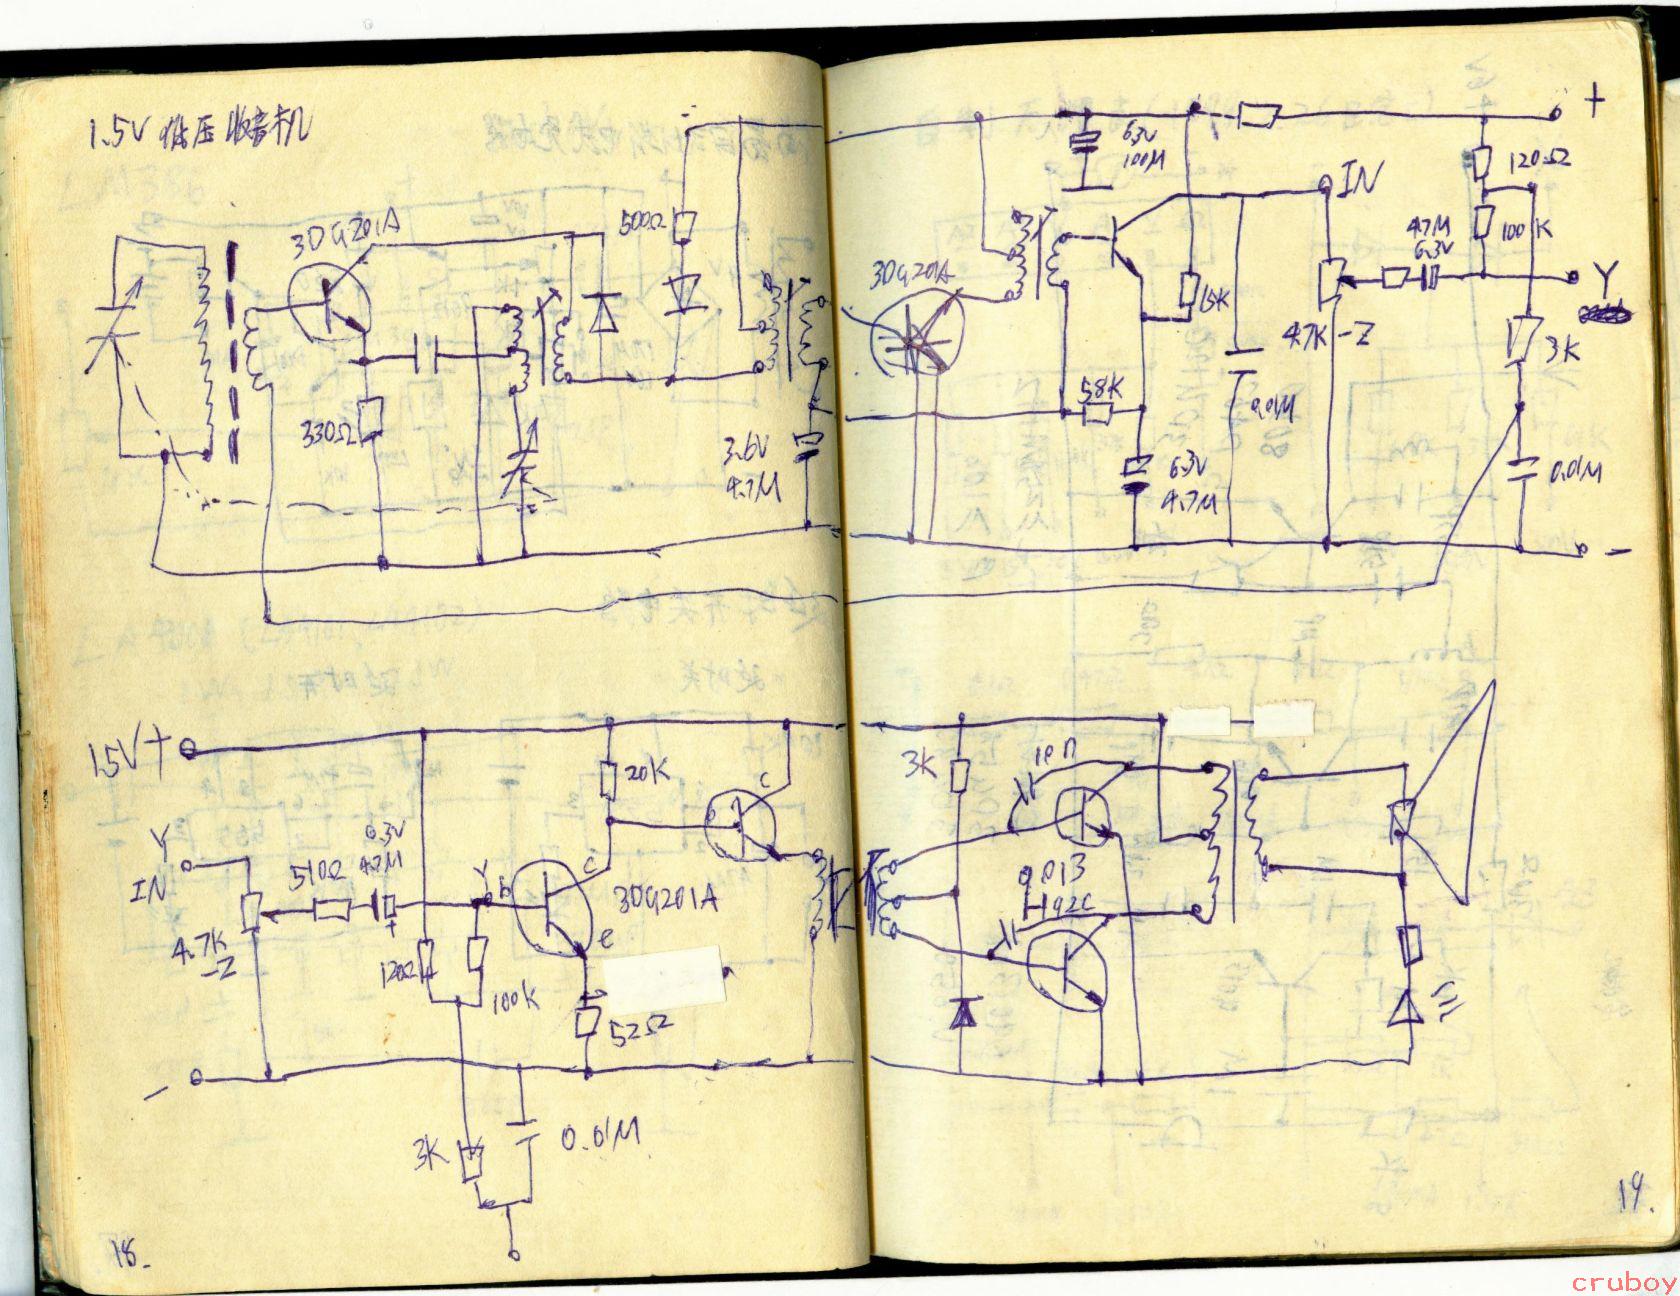 1.5V 低压收音机
3DG201A
330Ω
500Ω
3.6V
4.7M
3DG201A
6.3V
100M
IN
15K
58K
6.3V
4.7M
0.01M
4.7K-Z
4.7M
6.3V
+
120Ω
100K
Y
3K
0.01M
-
1.5V+
Y
IN
4.7K
-Z
510Ω
6.3V
4.7M
+
120Ω
100K
Y
b
c
e
20K
3DG201A
52Ω
b
c
3K
0.01M
-
3K
10n
9013
H92C
18.
19.
cruboy